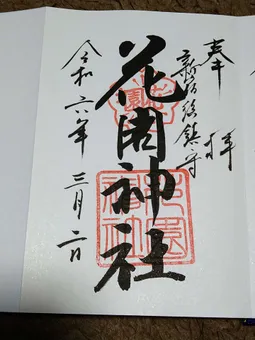 奉拝
新宿総鎮守
花園神社
令和六年 三月二日